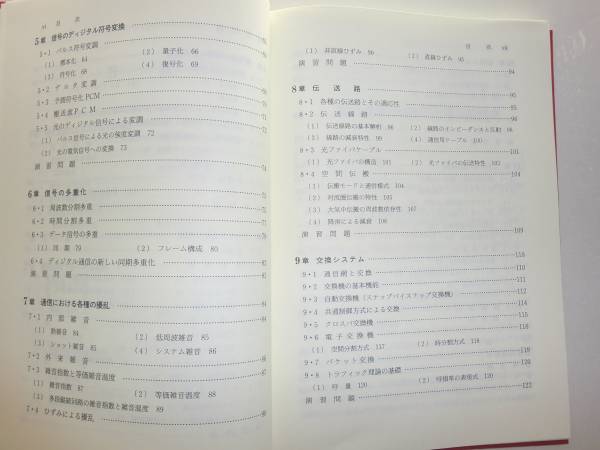 目次
5章 信号のディジタル符号変換
5・1 パルス符号変調
(1) 標本化 64 (2) 量子化 66
(3) 符号化 68 (4) 復号化 70
5・2 デルタ変調
5・3 予測符号化PCM
5・4 輸送波PCM
5・5 光のディジタル信号による変調
(1) パルス信号による光の強度変調 72
(2) 光の電気信号への変換 73
演習問題
6章 信号の多重化
6・1 周波数分割多重
6・2 時間分割多重
6・3 データ信号の多重
(1) 同期 79 (2) フレーム構成 80
6・4 ディジタル通信の新しい同期多重化
演習問題
7章 通信における各種の擾乱
7・1 内部雑音
(1) 熱雑音 84 (2) 低周波雑音 85
(3) ショット雑音 85 (4) システム雑音 85
7・2 外来雑音
7・3 雑音指数と等価雑音温度
(1) 雑音指数 87 (2) 等価雑音温度 88
(3) 多段縦続回路の雑音指数と雑音温度 89
7・4 ひずみによる擾乱
目次
(1) 非直線ひずみ 90 (2) 直線ひずみ 95
演習問題 94
8章 伝送路 95
8・1 各種の伝送路とその適応性 95
8・2 伝送線路 96
(1) 伝送線路の基本解析 96 (2) 線路のインピーダンスと反射 98
(3) 線路の減衰特性 (4) 通信用ケーブル 100
8・3 光ファイバケーブル 101
(1) 光ファイバの構造 101 (2) 光ファイバの伝送特性 102
8・4 空間伝搬 104
(1) 伝搬モードと通信様式 104
(2) 対流圏伝搬の特性 105
(3) 大気中伝搬の周波数依存性 107
(4) 降雨による減衰 108
演習問題 109
9章 交換システム 110
9・1 通信網と交換 110
9・2 交換機の基本機能 112
9・3 自動交換機(ステップバイステップ交換機)
9・4 共通制御方式による交換
9・5 クロスバ交換機
9・6 電子交換機
(1) 空間分割方式 117 (2) 時分割方式
9・7 パケット交換
9・8 トラフィック理論の基礎
(1) 呼量 120 (2) 呼損率の表現式 120
演習問題 122